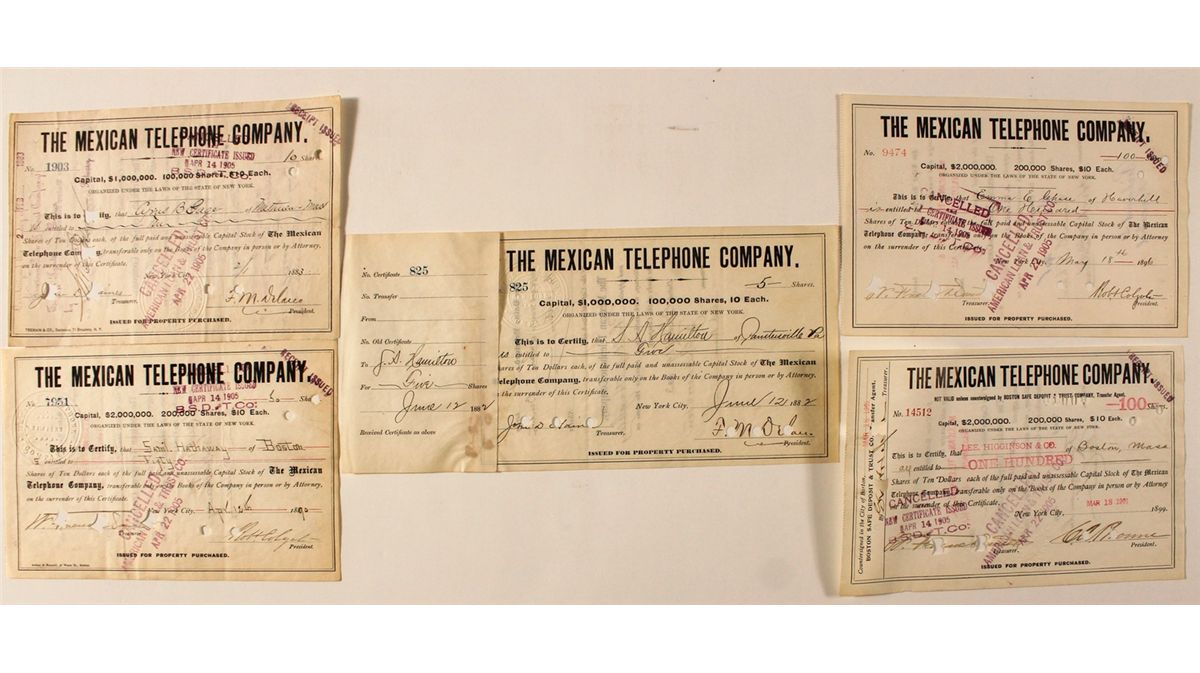 THE MEXICAN TELEPHONE COMPANY.
RECEIPT ISSUED
No. 1903
NEW CERTIFICATE ISSUED
APR 14 1905
B.S.D. & T. CO.
10 Shares
Capital, $1,000,000. 100,000 Shares, $10 Each.
ORGANIZED UNDER THE LAWS OF THE STATE OF NEW YORK.
This is to Certify, that
is entitled to
Shares of Ten Dollars each, of the full paid and unassessable Capital Stock of The Mexican
Telephone Company, transferable only on the Books of the Company in person or by Attorney,
on the surrender of this Certificate.
CANCELLED
AMERICAN LOAN & TRUST CO.
APR 22 1905
New York City, 1883.
Treasurer.
President.
ISSUED FOR PROPERTY PURCHASED.
THE MEXICAN TELEPHONE COMPANY.
RECEIPT ISSUED
No. 7951
NEW CERTIFICATE ISSUED
APR 14 1905
B.S.D. & T. CO.
Capital, $2,000,000. 200,000 Shares, $10 Each.
ORGANIZED UNDER THE LAWS OF THE STATE OF NEW YORK.
This is to Certify, that Hathaway of Boston
is entitled to
Shares of Ten Dollars each, of the full paid and unassessable Capital Stock of The Mexican
Telephone Company, transferable only on the Books of the Company in person or by Attorney,
on the surrender of this Certificate.
CANCELLED
AMERICAN LOAN & TRUST CO.
APR 22 1905
New York City, 1890
Robt Colgate
President.
ISSUED FOR PROPERTY PURCHASED.
No. Certificate 825
No. Transfer
From
No. Old Certificate
To J. D. Hamilton
For Five Shares
June 12 1882
Received Certificate as above
THE MEXICAN TELEPHONE COMPANY.
825
5 Shares.
Capital, $1,000,000. 100,000 Shares, 10 Each.
ORGANIZED UNDER THE LAWS OF THE STATE OF NEW YORK.
This is to Certify, that Hamilton of
is entitled to Five
Shares of Ten Dollars each, of the full paid and unassessable Capital Stock of The Mexican
Telephone Company, transferable only on the Books of the Company in person or by Attorney,
on the surrender of this Certificate.
New York City, June 12 1882
Treasurer.
President.
ISSUED FOR PROPERTY PURCHASED.
THE MEXICAN TELEPHONE COMPANY.
No. 9474
100
Capital, $2,000,000. 200,000 Shares, $10 Each.
ORGANIZED UNDER THE LAWS OF THE STATE OF NEW YORK.
This is to Certify, that Emma E. Chase of Haverhill
is entitled to One Hundred
CANCELLED
AND
CERTIFICATE ISSUED
APR 14 1905
Shares of Ten Dollars each, of the full paid and unassessable Capital Stock of The Mexican
Telephone Company, transferable only on the Books of the Company in person or by Attorney,
on the surrender of this Certificate.
CANCELLED
AMERICAN LOAN & TRUST CO.
APR 22 1905
New York City, May 18th 1896
Treasurer.
Robt Colgate
President.
ISSUED FOR PROPERTY PURCHASED.
THE MEXICAN TELEPHONE COMPANY.
RECEIPT ISSUED
NOT VALID unless countersigned by BOSTON SAFE DEPOSIT & TRUST COMPANY, Transfer Agent.
No. 14512
100 Shares.
Capital, $2,000,000. 200,000 Shares, $10 Each.
ORGANIZED UNDER THE LAWS OF THE STATE OF NEW YORK.
This is to Certify, that LEE, HIGGINSON & CO. of Boston, Mass
entitled to ONE HUNDRED
Shares of Ten Dollars each, of the full paid and unassessable Capital Stock of The Mexican
Telephone Company, transferable only on the Books of the Company in person or by Attorney,
on the surrender of this Certificate.
CANCELLED
AND
NEW CERTIFICATE ISSUED
APR 14 1905
B.S.D. & T. CO.
New York City, MAR 18 1901 1899.
Treasurer.
President.
ISSUED FOR PROPERTY PURCHASED.
Countersigned in the City of Boston.
BOSTON SAFE DEPOSIT & TRUST CO., Transfer Agent.
Treasurer.